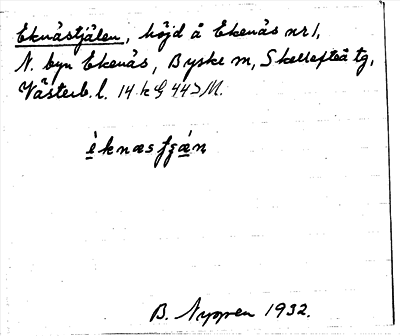 Eknästjälen, höjd å Ekenäs nr 1,
N. byn Ekenäs, Byske sn, Skellefteå tg,
Västerb. l. 14 k G 44 > M.
èknæsfzán
B. Nyppen 1932.